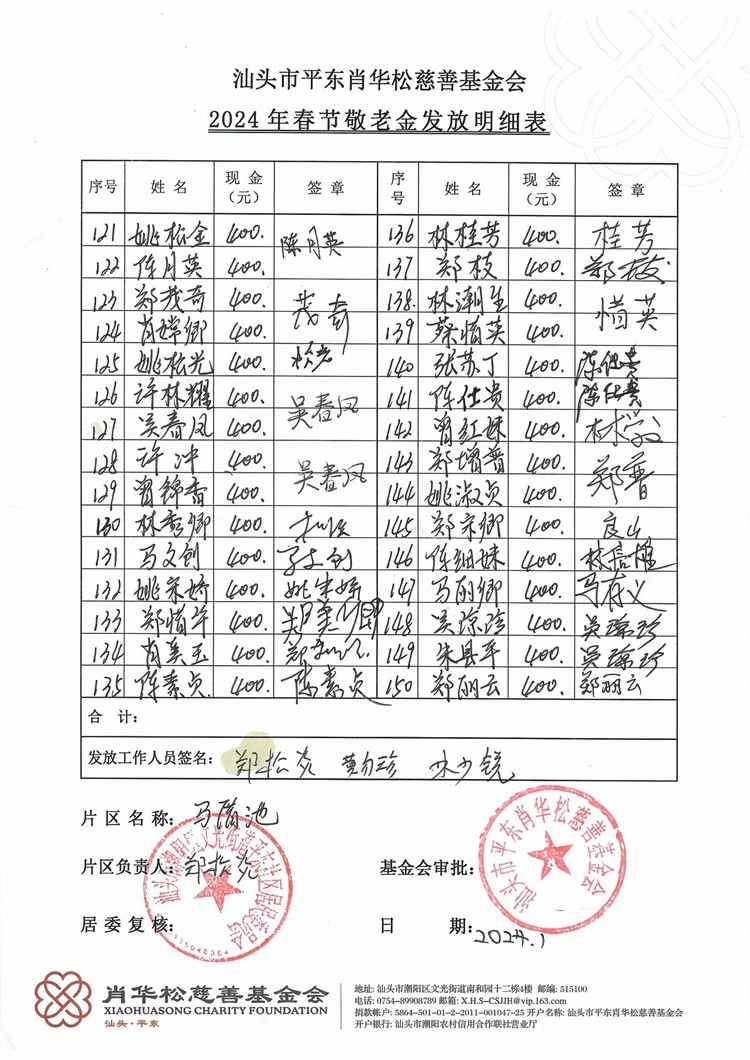 汕头市平东肖华松慈善基金会
2024年春节敬老金发放明细表
序号 姓名 现金（元） 签章 序号 姓名 现金（元） 签章
121 姚松金 400. 陈月英 136 林桂芳 400. 桂芳
122 陈月英 400. 137 郑枝 400. 郑枝
123 郑茂奇 400. 茂奇 138. 林潮生 400. 惜英
124 肖嫦卿 400. 139 蔡惜英 400.
125 姚松光 400. 松光 140 张苏丁 400. 陈仕贵
126 许林耀 400. 吴春凤 141 陈仕贵 400. 陈仕贵
127 吴春凤 400. 142 曾红妹 400.
128 许冲 400. 吴春凤 143 郑增普 400. 郑普
129 曾锦香 400. 144 姚淑贞 400.
130 林秀卿 400. 145 郑宋卿 400. 良山
131 马文创 400. 146 陈细妹 400.
132 姚朱娇 400. 姚朱娇 147 马丽卿 400. 马存义
133 郑惜华 400. 148 吴琼珍 400. 吴琼珍
134 肖美玉 400. 149 朱县平 400. 吴琼珍
135 陈素贞 400. 陈素贞 150 郑丽云 400. 郑丽云
合计：
发放工作人员签名：
片区名称：
片区负责人： 基金会审批：
居委复核： 日期：2024.1
汕头市平东肖华松慈善基金会
肖华松慈善基金会
XIAOHUASONG CHARITY FOUNDATION
汕头·平东
地址: 汕头市潮阳区文光街道南和园十二栋4楼 邮编: 515100
电话: 0754-89908789 邮箱: X.H.S-CSJJH@vip.163.com
捐款帐户: 5864-501-01-2-2011-001047-25 开户名称: 汕头市平东肖华松慈善基金会
开户银行: 汕头市潮阳农村信用合作联社营业厅